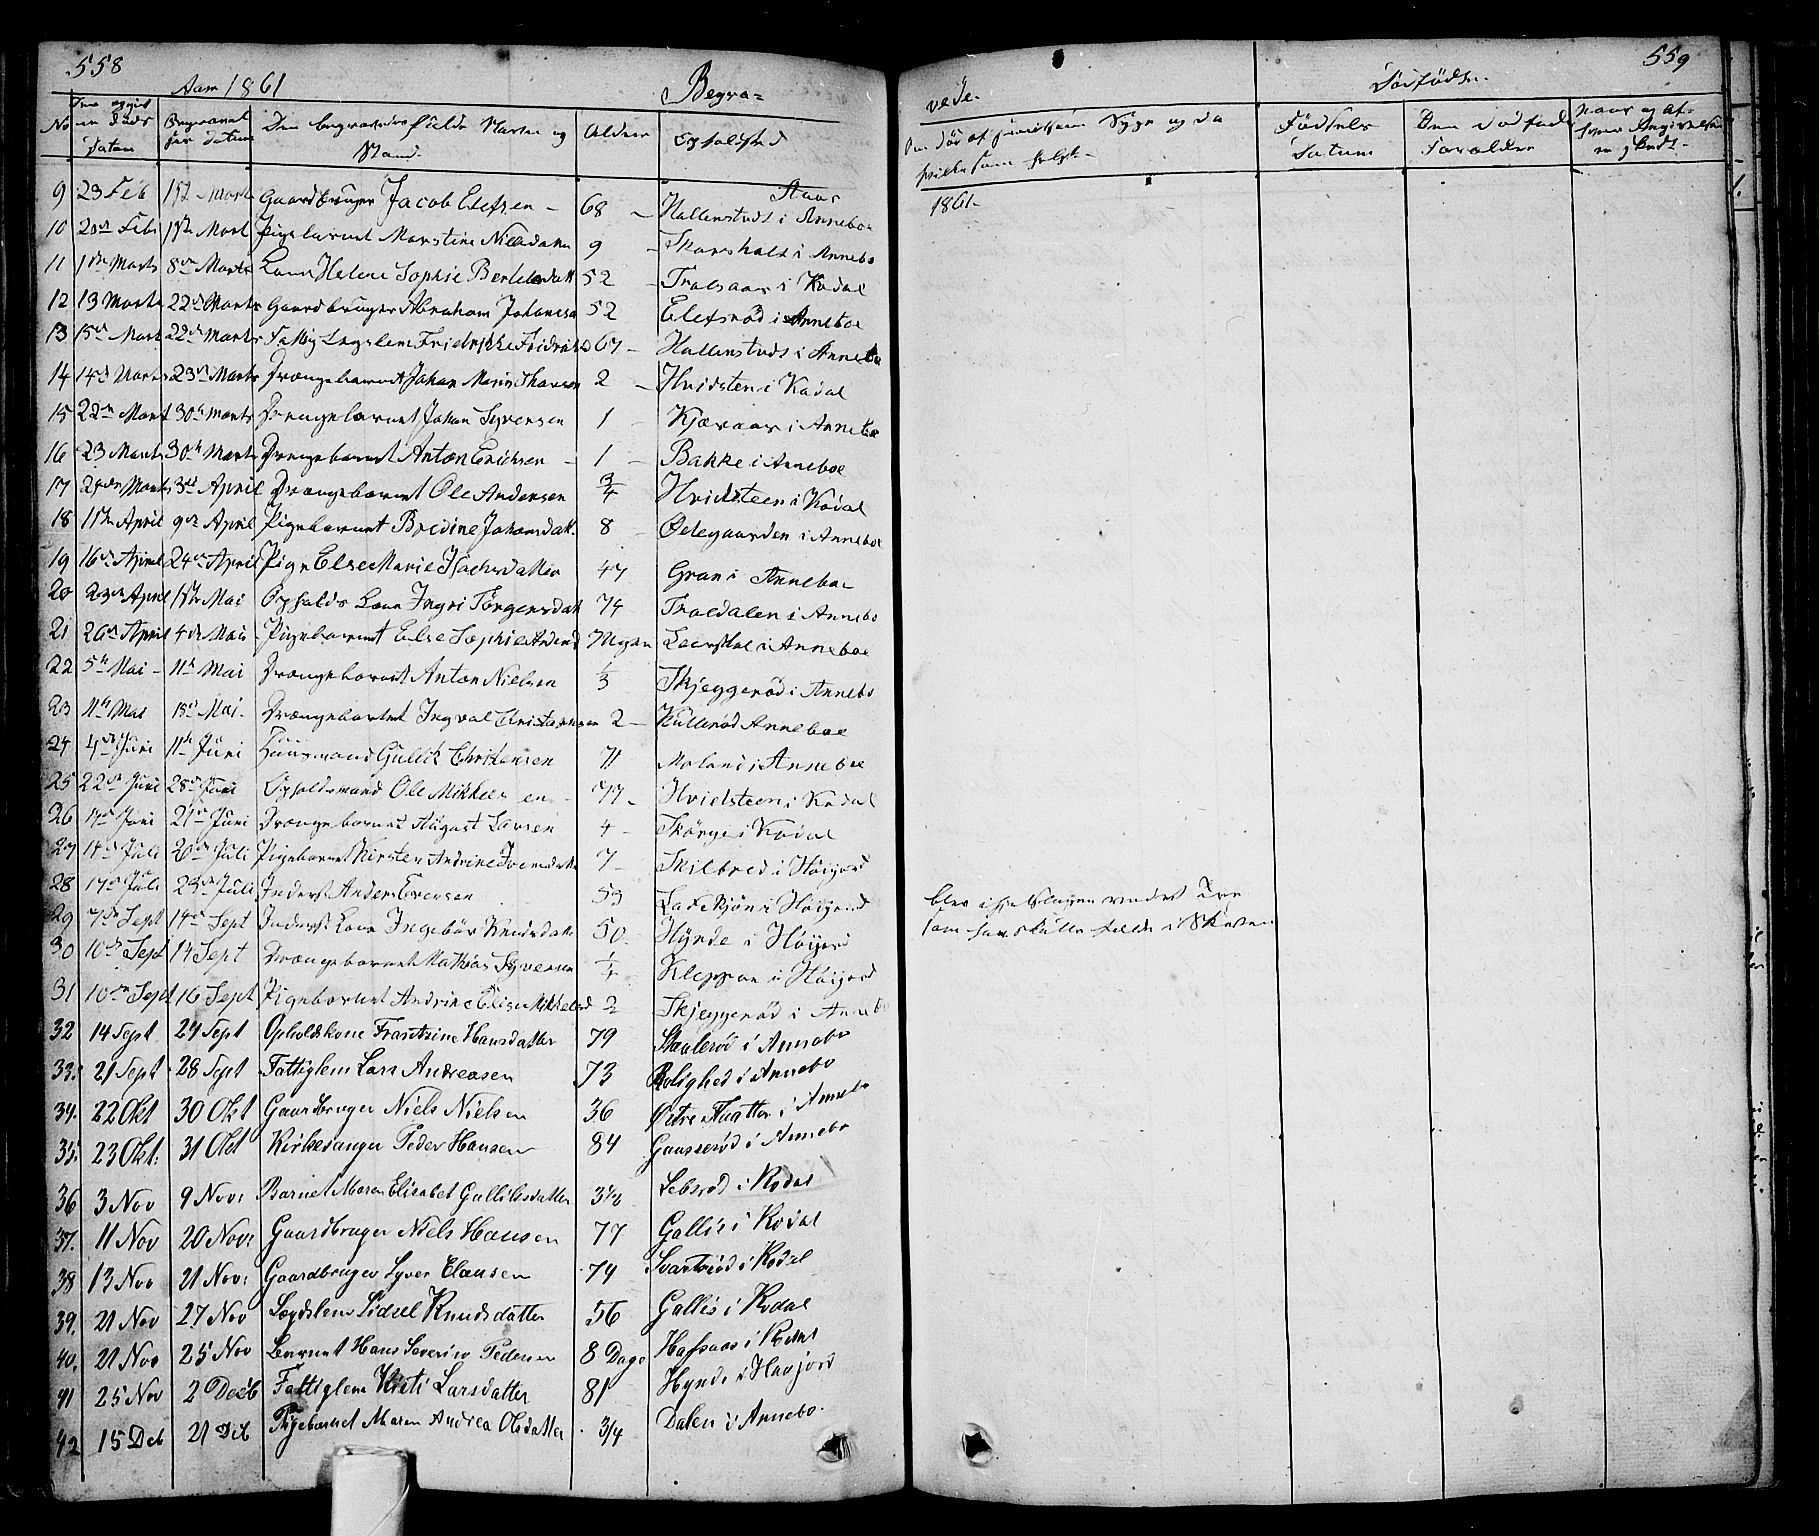 558
Aar 1861
Begra=
No Den angivne Døds Datum Begravelses Datum Den begravedes fulde Navn og Stand. Alder Opholdssted
9 23 Feb 1st Marts Gaardbruger Jacob Elefsen - 68 - Hallenstvedt i Anneboe
10 20de Feb 1ste Mart Pigebarnet Marstine Nielsdatter 9 - Skarsholt i Annebo
11 1ste Marts 8de Marts Kone Helene Sophie Bertelsdatt 52 Trolsaas i Kodal
12 13 Marts 22de Marts Gaardbruger Abraham Johansen 52 Elefsrød i Anneboe
13 15de Mart 22de Marts Fattig Legslem Fredrikke Fridriks 67 - Hallenstvedt i Annebo
14 14de Marts 23de Marts Drængebarnet Johan Marin Thoresen 2 - Hvidsten i Kodal
15 22de Mart 30te Marts Drængebarnet Johan Syversen 1 - Kjæraas i Anneboe
16 23 Marts 30te Marts Drængebarnet Anton Erichsen - 1 - Bakke i Anneboe
17 24de Marts 3de April Drængebarnet Ole Andersen 3/4 Hvidsteen i Kodal
18 1ste April 9de April Pigebarnet Bredine Johansdatt. 8 - Ødegaarden i Anneboe
19 16de April 24de April Pige Else Marie Isachsdatter 47 Gran i Anneboe
20 23de April 1ste Mai Opholds Kone Ingri Jörgensdatt 74 Troldalen i Annebo
21 26de April 4de Mai - Pigebarnet Else Sophie Andersd 7 Maaneder Leerskal i Anneboe
22 5te Mai - 11te Mai Drængebarnet Anton Nielsen 1/3 Skjeggerød i Annebo
23 11te Mai 18de Mai - Drængebarnet Ingval Christiansen 2 - Kullerød Anneboe
24 4de Juni 11te Juni Huusmand Gullik Christensen 71 Moland i Anneboe
25 22de Juni 28de Juni Opholdsmand Ole Mikkelsen - 77 - Hvidsteen i Kodal
26 17de Juni 21de Juni Drængebarnet August Larsen 4 - Skörge i Kodal
27 14de Juli 20de Juli Pigebarnet Kirsten Andrine Ivensdatter 7 - Skilbred i Höigord
28 17de Juli 23de Juli Inderst Anders Evensen 53 Ladeskjön i Höigord
29 7de Sept 14de Sept Inderst Kone Ingebör Knudsdatt 50 - Hynde i Höijord
30 10de Sept 14 Sept Drængebarnet Mathias Syversen 1/4 Kleppan i Höigord
31 10de Sept 16 Sept Pigebarnet Andrine Elise Mikkelsd 2 Skjeggerød i Annebo
32 14 Sept 24 Sept Opholdskone Frantzine Hansdatter 79 Skaulerød i Annebo
33. 21 Sept 28 Sept Fattiglem Lars Andreasen 73 Rolighed i Annebo
34. 22 Okt 30 Okt Gaardbruger Niels Nielsen 36 Østre Flaatten i Annebo
35. 23 Okt: 31 Okt Kirkesanger Peder Hansen 84 Gaasserød i Annebo
36 3 Nov 9 Nov: Barnet Maren Elisabet Gulliksdatter 3 1/2 Lebsrød i Kodal
37. 11 Nov 20 Nov: Gaardbruger Niels Hansen 77 Gallis i Kodal
38 13 Nov 21 Nov: Gaardbruger Syver Clausen 74 Svartsrød i Kodal
39. 21 Nov 27 Nov Lægdslem Sidsel Knudsdatter 56 Gallis i Kodal
40. 21 Nov 25 Nov Barnet Hans Severin Pedersen 8 Dage Hafsaas i Kodal
41 25 Nov 2 Decb Fattiglem Kisti Larsdatter 81 Hynde i Høijord
42 15 Deb 21 Deb Pigebarnet Maren Andrea Olsdatter 3/4 Dalen i Annebo.
559
vede.
Dødfødte.
Om død af Sygdom og da
hvilken som helst
Fødsels Datum
Den Dødfødtes Forældre
Naar og af hvem Angivelsen er gjort
1861-
blev ihjelslagen ved et Træ
som han skulle fælde i Skoven